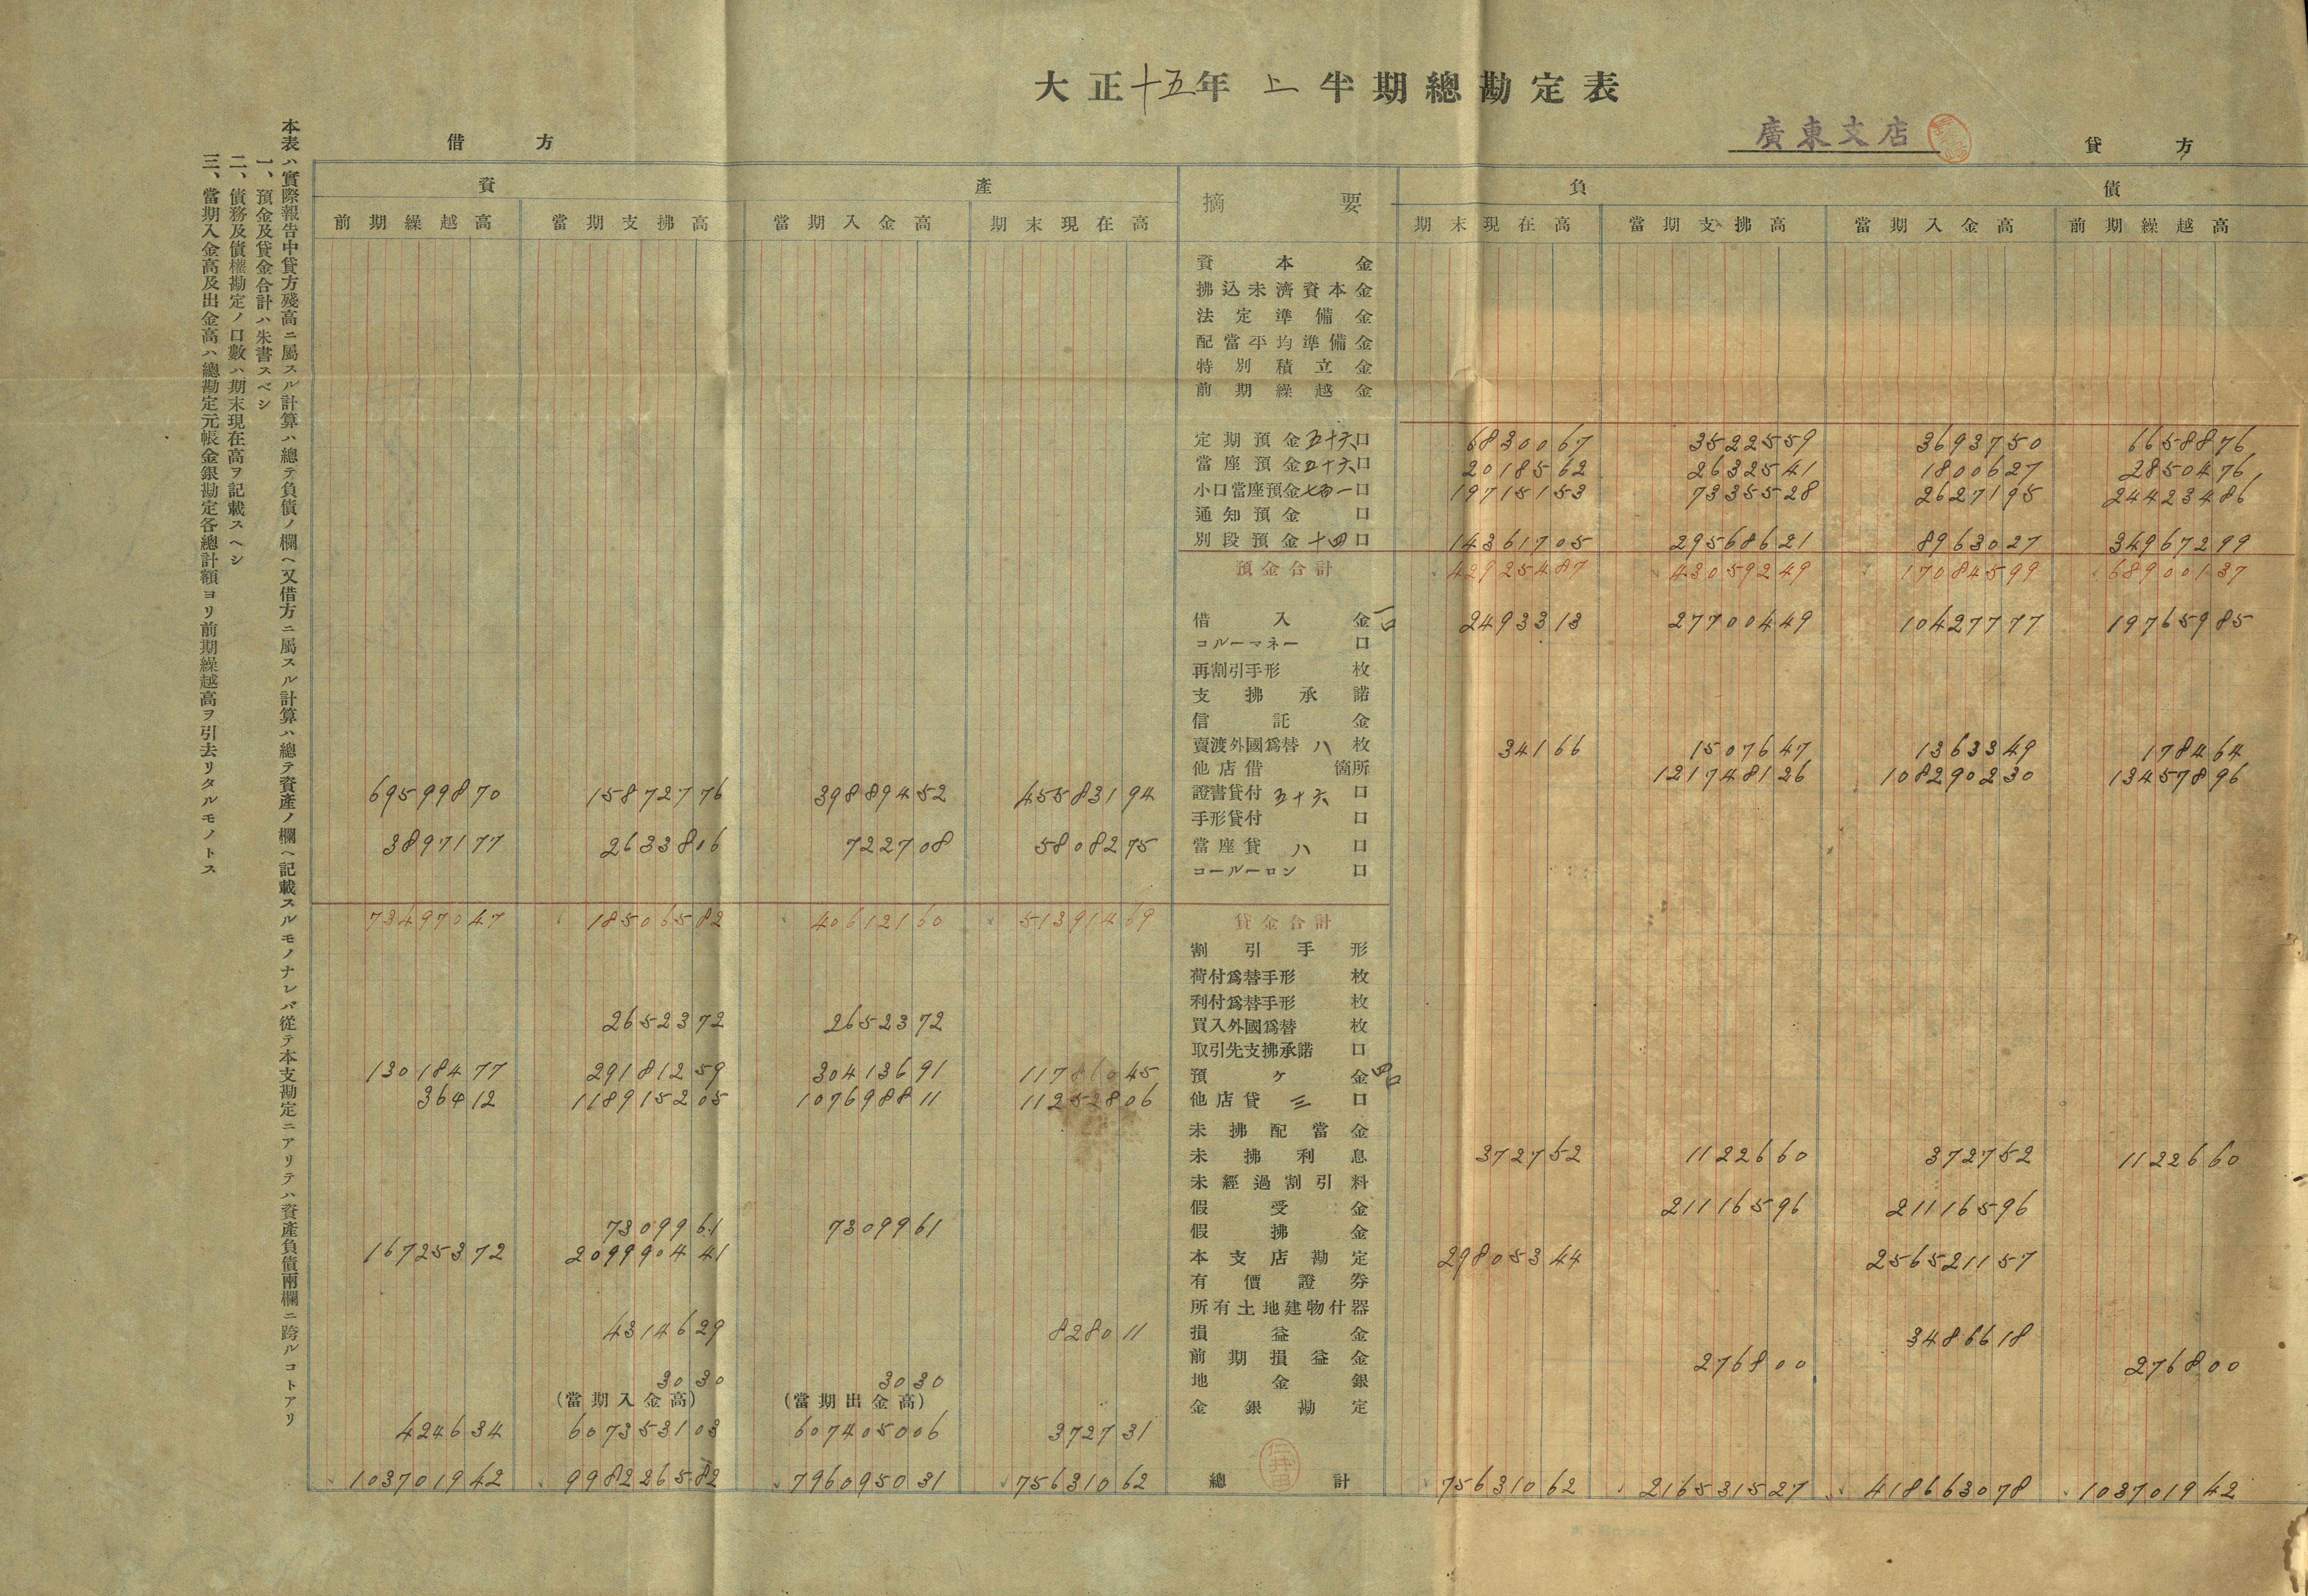 大正十五年上半期總勘定表
廣東支店
借方
貸方
資產
摘要
負債
前期繰越高 當期支拂高 當期入金高 期末現在高 期末現在高 當期支拂高 當期入金高 前期繰越高
資本金
拂込未濟資本金
法定準備金
配當平均準備金
特別積立金
前期繰越金
定期預金五十六口 6830067 3522559 3693750 6658876
當座預金五十六口 2018562 2632541 1800627 2850476
小口當座預金七百一口 19715153 7335528 2627195 24423486
通知預金 口
別段預金十四口 14361705 29568621 8963027 34967299
預金合計 42925487 43059249 17084599 68900137
借入金一口 2493313 27700449 10427777 19765985
コルーマネー 口
再割引手形 枚
支拂承諾
信託金
賣渡外國爲替八枚 34166 1507647 1363349 178464
他店借 箇所 121748126 108290230 13457896
69599870 15872776 39889452 45583194 證書貸付五十六口
手形貸付 口
3897177 2633806 722708 5808275 當座貸八口
コールーロン 口
73497047 18506582 40612160 51391469 貸金合計
割引手形
荷付爲替手形 枚
利付爲替手形 枚
2652372 2652372 買入外國爲替 枚
取引先支拂承諾 口
13018477 29181259 30413691 11786045 預ケ金四口
36412 118915205 107698811 11252806 他店貸三口
未拂配當金
未拂利息 372752 1122660 372752 1122660
未經過割引料
假受金 21116596 21116596
7309961 7309961 假拂金
16725372 209990441 本支店勘定 29805344 256521157
有價證券
所有土地建物什器
4314629 828011 損益金 3486618
前期損益金 276800 276800
3030 3030 地金銀
(當期入金高) (當期出金高) 金銀勘定
424634 607353103 607405006 372731
103701942 998226582 796095031 75631062 總計 75631062 216531527 418663078 103701942
本表ハ實際報告中貸方殘高ニ屬スル計算ハ總テ負債ノ欄ヘ又借方ニ屬スル計算ハ總テ資產ノ欄ヘ記載スルモノナレバ從テ本支勘定ニアリテハ資產負債兩欄ニ跨ルコトアリ
一、預金及貸金合計ハ朱書スベシ
二、債務及債權勘定ノ口數ハ期末現在高ヲ記載スヘシ
三、當期入金高及出金高ハ總勘定元帳金銀勘定各總計額ヨリ前期繰越高ヲ引去リタルモノトス